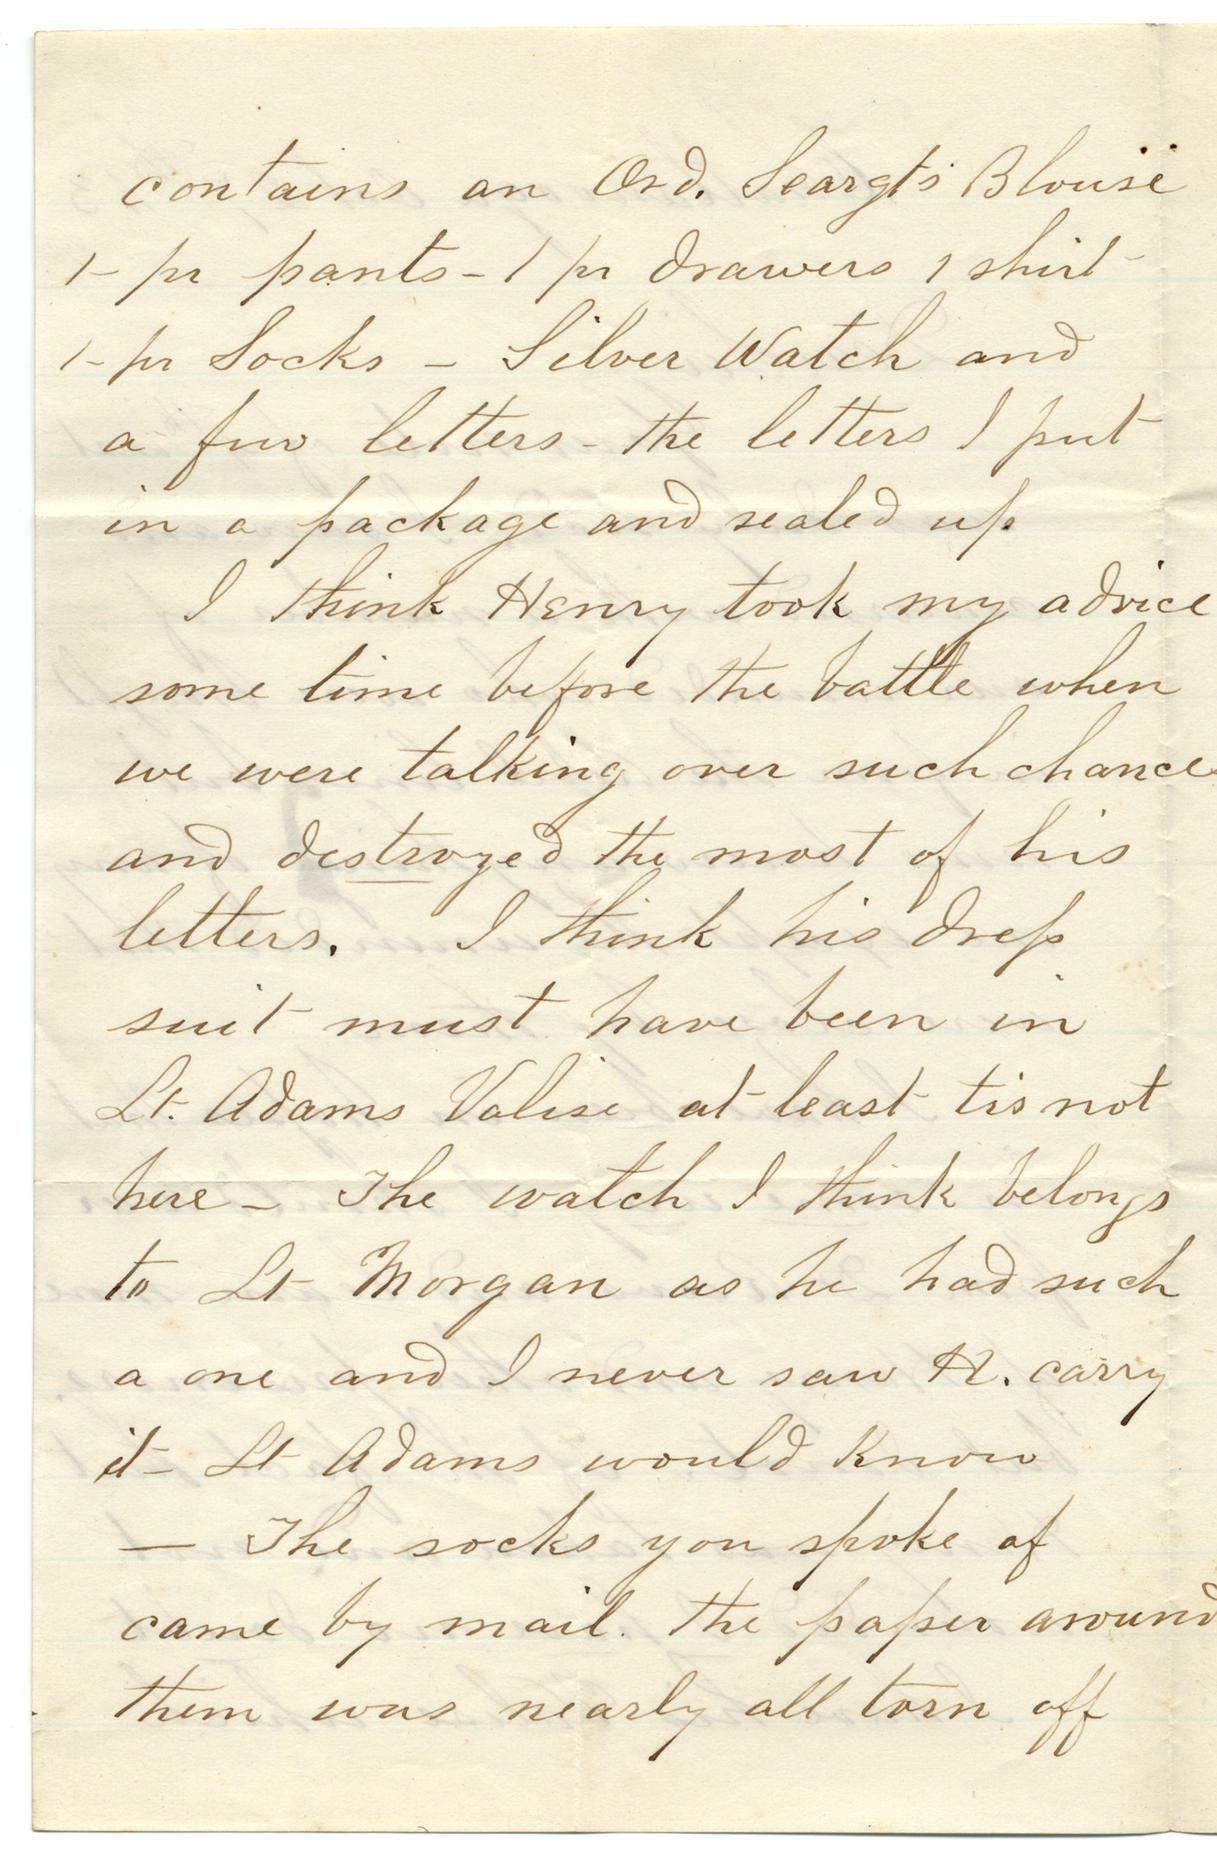 contains an Ord. Seargt's Blouse
1- pr pants - 1 pr drawers 1 shirt
1- pr Socks - Silver Watch and
a few letters - the letters I put
in a package and sealed up
I think Henry took my advice
some time before the battle when
we were talking over such chance
and destroyed the most of his
letters. I think his dress
suit must have been in
Lt. Adams Valise at least tis not
here - The watch I think belongs
to Lt Morgan as he had such
a one and I never saw H. carry
it - Lt Adams would know
— The socks you spoke of
came by mail. the paper around
them was nearly all torn off